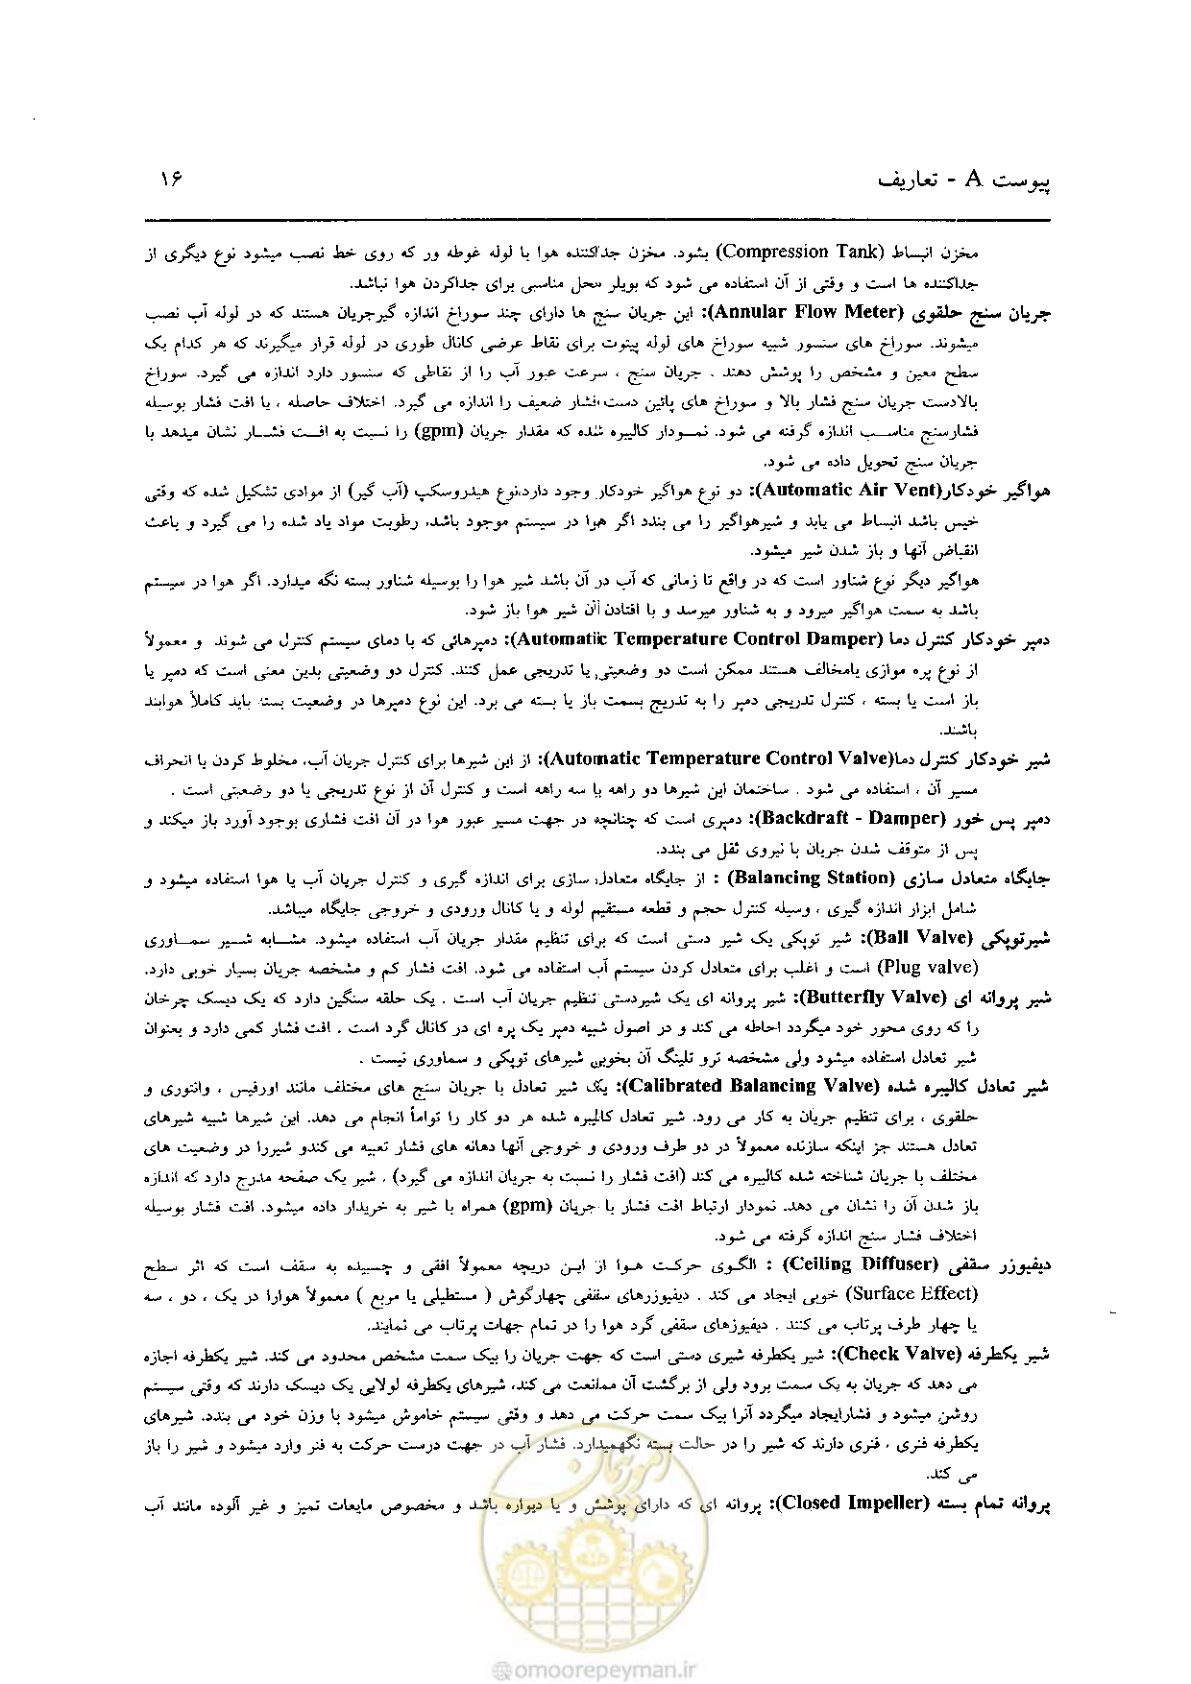 پیوست A - تعاریف ۱۶
مخزن انبساط (Compression Tank) بشود. مخزن جداکننده هوا با لوله غوطه ور که روی خط نصب میشود نوع دیگری از
جداکننده ها است و وقتی از آن استفاده می شود که بویلر محل مناسبی برای جداکردن هوا نباشد.
جریان سنج حلقوی (Annular Flow Meter): این جریان سنج ها دارای چند سوراخ اندازه گیرجریان هستند که در لوله آب نصب
میشوند. سوراخ های سنسور شبیه سوراخ های لوله پیتوت برای نقاط عرضی کانال طوری در لوله قرار میگیرند که هر کدام یک
سطح معین و مشخص را پوشش دهند . جریان سنج ، سرعت عبور آب را از نقاطی که سنسور دارد اندازه می گیرد. سوراخ
بالادست جریان سنج فشار بالا و سوراخ های پائین دست،فشار ضعیف را اندازه می گیرد. اختلاف حاصله ، یا افت فشار بوسیله
فشارسنج مناسب اندازه گرفته می شود. نمودار کالیبره شده که مقدار جریان (gpm) را نسبت به افت فشار نشان میدهد با
جریان سنج تحویل داده می شود.
هواگیر خودکار(Automatic Air Vent): دو نوع هواگیر خودکار وجود دارد،نوع هیدروسکپ (آب گیر) از موادی تشکیل شده که وقتی
خیس باشد انبساط می یابد و شیرهواگیر را می بندد اگر هوا در سیستم موجود باشد، رطوبت مواد یاد شده را می گیرد و باعث
انقباض آنها و باز شدن شیر میشود.
هواگیر دیگر نوع شناور است که در واقع تا زمانی که آب در آن باشد شیر هوا را بوسیله شناور بسته نگه میدارد. اگر هوا در سیستم
باشد به سمت هواگیر میرود و به شناور میرسد و با افتادن آن شیر هوا باز شود.
دمپر خودکار کنترل دما (Automatic Temperature Control Damper): دمپرهائی که با دمای سیستم کنترل می شوند و معمولاً
از نوع پره موازی یامخالف هستند ممکن است دو وضعیتی یا تدریجی عمل کنند. کنترل دو وضعیتی بدین معنی است که دمپر یا
باز است یا بسته ، کنترل تدریجی دمپر را به تدریج بسمت باز یا بسته می برد. این نوع دمپرها در وضعیت بسته باید کاملاً هوابند
باشند.
شیر خودکار کنترل دما(Automatic Temperature Control Valve): از این شیرها برای کنترل جریان آب، مخلوط کردن یا انحراف
مسیر آن ، استفاده می شود . ساختمان این شیرها دو راهه یا سه راهه است و کنترل آن از نوع تدریجی یا دو وضعیتی است .
دمپر پس خور (Backdraft - Damper): دمپری است که چنانچه در جهت مسیر عبور هوا در آن افت فشاری بوجود آورد باز میکند و
پس از متوقف شدن جریان با نیروی ثقل می بندد.
جایگاه متعادل سازی (Balancing Station) : از جایگاه متعادل سازی برای اندازه گیری و کنترل جریان آب یا هوا استفاده میشود و
شامل ابزار اندازه گیری ، وسیله کنترل حجم و قطعه مستقیم لوله و یا کانال ورودی و خروجی جایگاه میباشد.
شیرتوپکی (Ball Valve): شیر توپکی یک شیر دستی است که برای تنظیم مقدار جریان آب استفاده میشود. مشابه شیر سماوری
(Plug valve) است و اغلب برای متعادل کردن سیستم آب استفاده می شود. افت فشار کم و مشخصه جریان بسیار خوبی دارد.
شیر پروانه ای (Butterfly Valve): شیر پروانه ای یک شیردستی تنظیم جریان آب است . یک حلقه سنگین دارد که یک دیسک چرخان
را که روی محور خود میگردد احاطه می کند و در اصول شبیه دمپر یک پره ای در کانال گرد است . افت فشار کمی دارد و بعنوان
شیر تعادل استفاده میشود ولی مشخصه ترو تلینگ آن بخوبی شیرهای توپکی و سماوری نیست .
شیر تعادل کالیبره شده (Calibrated Balancing Valve): یک شیر تعادل با جریان سنج های مختلف مانند اورفیس ، وانتوری و
حلقوی ، برای تنظیم جریان به کار می رود. شیر تعادل کالیبره شده هر دو کار را تواماً انجام می دهد. این شیرها شبیه شیرهای
تعادل هستند جز اینکه سازنده معمولاً در دو طرف ورودی و خروجی آنها دهانه های فشار تعبیه می کندو شیررا در وضعیت های
مختلف با جریان شناخته شده کالیبره می کند (افت فشار را نسبت به جریان اندازه می گیرد) ، شیر یک صفحه مدرج دارد که اندازه
باز شدن آن را نشان می دهد. نمودار ارتباط افت فشار با جریان (gpm) همراه با شیر به خریدار داده میشود. افت فشار بوسیله
اختلاف فشار سنج اندازه گرفته می شود.
دیفیوزر سقفی (Ceiling Diffuser) : الگوی حرکت هوا از این دریچه معمولاً افقی و چسبیده به سقف است که اثر سطح
(Surface Effect) خوبی ایجاد می کند . دیفیوزرهای سقفی چهارگوش ( مستطیلی یا مربع ) معمولاً هوارا در یک ، دو ، سه
یا چهار طرف پرتاب می کنند . دیفیوزهای سقفی گرد هوا را در تمام جهات پرتاب می نمایند.
شیر یکطرفه (Check Valve): شیر یکطرفه شیری دستی است که جهت جریان را بیک سمت مشخص محدود می کند. شیر یکطرفه اجازه
می دهد که جریان به یک سمت برود ولی از برگشت آن ممانعت می کند، شیرهای یکطرفه لولایی یک دیسک دارند که وقتی سیستم
روشن میشود و فشارایجاد میگردد آنرا بیک سمت حرکت می دهد و وقتی سیستم خاموش میشود با وزن خود می بندد. شیرهای
یکطرفه فنری ، فنری دارند که شیر را در حالت بسته نگهمیدارد. فشار آب در جهت درست حرکت به فنر وارد میشود و شیر را باز
می کند.
پروانه تمام بسته (Closed Impeller): پروانه ای که دارای پوشش و یا دیواره باشد و مخصوص مایعات تمیز و غیر آلوده مانند آب
امور پیمان
@omoorepeyman.ir